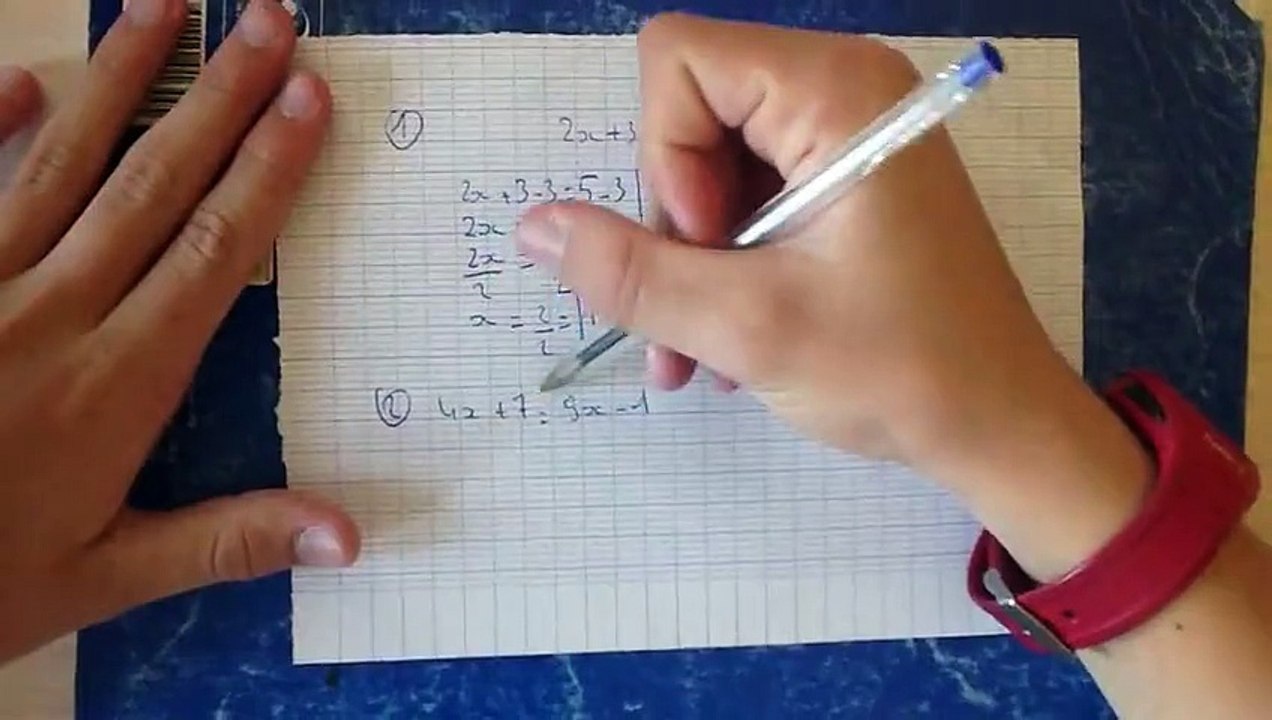 ① 2x+3
2x+3-3=5-3
2x
2x/2 =
x = 2/2 = 1
② 4x+7 = 9x-1